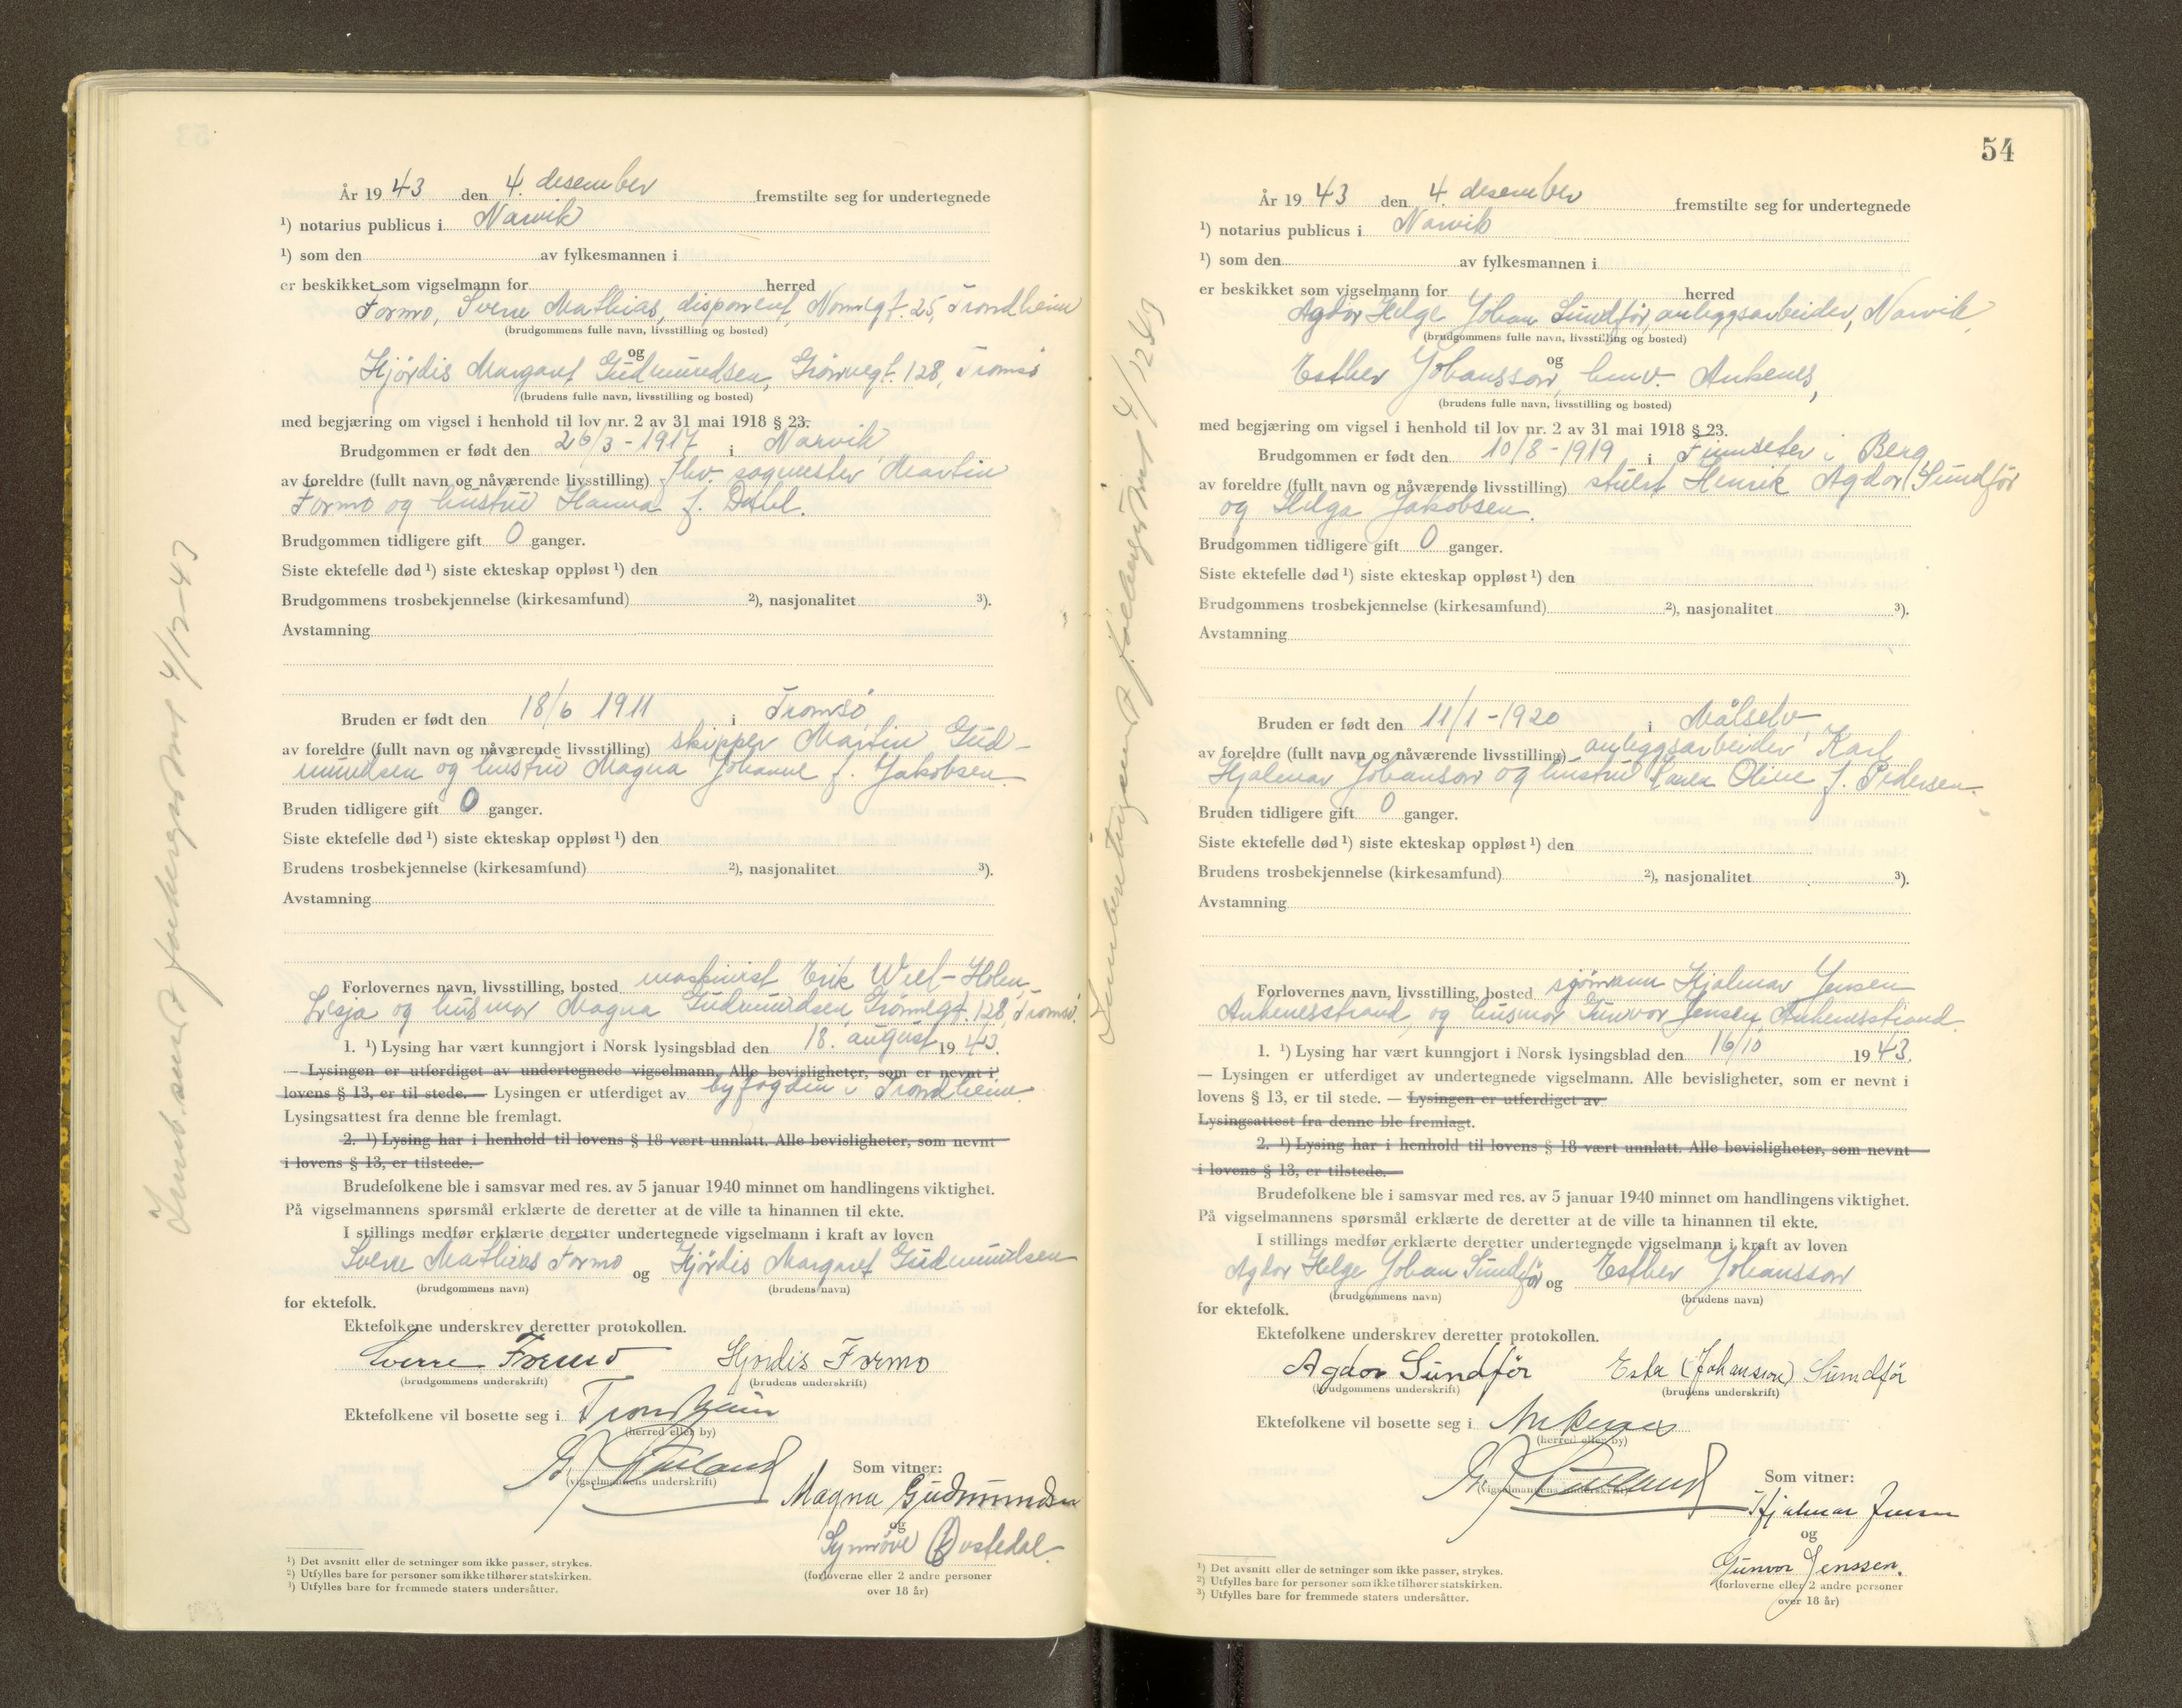 År 1943 den 4. desember fremstilte seg for undertegnede
¹) notarius publicus i Narvik
¹) som den av fylkesmannen i
er beskikket som vigselmann for herred
Formo, Sverre Mathias, disponent, Nonnegt. 25, Trondheim
(brudgommens fulle navn, livsstilling og bosted)
og
Hjördis Margaret Gudmundsen, Grönnegt. 128, Tromsö
(brudens fulle navn, livsstilling og bosted)
med begjæring om vigsel i henhold til lov nr. 2 av 31 mai 1918 § 23.
Brudgommen er født den 26/3 - 1917 i Narvik
av foreldre (fullt navn og nåværende livsstilling) fhv. Martin
Formo og hustru Hanna f. Dahl.
Brudgommen tidligere gift 0 ganger.
Siste ektefelle død ¹) siste ekteskap oppløst ¹) den
Brudgommens trosbekjennelse (kirkesamfund) ²), nasjonalitet ³).
Avstamning
Bruden er født den 18/6 1911 i Tromsö
av foreldre (fullt navn og nåværende livsstilling) skipper Martin Gud-
mundsen og hustru Magna Johanne f. Jakobsen
Bruden tidligere gift 0 ganger.
Siste ektefelle død ¹) siste ekteskap oppløst ¹) den
Brudens trosbekjennelse (kirkesamfund) ²), nasjonalitet ³).
Avstamning
Forlovernes navn, livsstilling, bosted maskinist Erik Holen,
Lesja og husmor Magna Gudmundsen, Grönnegt. 128, Tromsö.
1. ¹) Lysing har vært kunngjort i Norsk lysingsblad den 18. august 1943.
— Lysingen er utferdiget av undertegnede vigselmann. Alle bevisligheter, som er nevnt i
lovens § 13, er til stede. — Lysingen er utferdiget av byfogden i Trondheim.
Lysingsattest fra denne ble fremlagt.
2. ¹) Lysing har i henhold til lovens § 18 vært unnlatt. Alle bevisligheter, som nevnt
i lovens § 13, er tilstede.
Brudefolkene ble i samsvar med res. av 5 januar 1940 minnet om handlingens viktighet.
På vigselmannens spørsmål erklærte de deretter at de ville ta hinannen til ekte.
I stillings medfør erklærte deretter undertegnede vigselmann i kraft av loven
Sverre Mathias Formo og Hjördis Margaret Gudmundsen
(brudgommens navn) (brudens navn)
for ektefolk.
Ektefolkene underskrev deretter protokollen.
Sverre Formo Hjördis Formo
(brudgommens underskrift) (brudens underskrift)
Ektefolkene vil bosette seg i Trondheim
(herred eller by)
(vigselmannens underskrift)
Som vitner:
Magna Gudmundsen
og
Synnöve Ovstedal.
(forloverne eller 2 andre personer
over 18 år)
¹) Det avsnitt eller de setninger som ikke passer, strykes.
²) Utfylles bare for personer som ikke tilhører statskirken.
³) Utfylles bare for fremmede staters undersåtter.
4/12-43
54
År 1943 den 4. desember fremstilte seg for undertegnede
¹) notarius publicus i Narvik
¹) som den av fylkesmannen i
er beskikket som vigselmann for herred
Agdor Helge Johan Sundför, anleggsarbeider, Narvik
(brudgommens fulle navn, livsstilling og bosted)
og
Esther Johansson, Ankenes,
(brudens fulle navn, livsstilling og bosted)
med begjæring om vigsel i henhold til lov nr. 2 av 31 mai 1918 § 23.
Brudgommen er født den 10/8 - 1919 i Finnseter i Berg
av foreldre (fullt navn og nåværende livsstilling) Henrik Agdor Sundför
og Helga Jakobsen.
Brudgommen tidligere gift 0 ganger.
Siste ektefelle død ¹) siste ekteskap oppløst ¹) den
Brudgommens trosbekjennelse (kirkesamfund) ²), nasjonalitet ³).
Avstamning
Bruden er født den 11/1 - 1920 i Målselv
av foreldre (fullt navn og nåværende livsstilling) anleggsarbeider Karl
Hjalmar Johanson og hustru Laura Oline f. Pedersen.
Bruden tidligere gift 0 ganger.
Siste ektefelle død ¹) siste ekteskap oppløst ¹) den
Brudens trosbekjennelse (kirkesamfund) ²), nasjonalitet ³).
Avstamning
Forlovernes navn, livsstilling, bosted sjömann Hjalmar Jensen
Ankenesstrand og husmor Gunvor Jensen, Ankenesstrand.
1. ¹) Lysing har vært kunngjort i Norsk lysingsblad den 16/10 1943.
— Lysingen er utferdiget av undertegnede vigselmann. Alle bevisligheter, som er nevnt i
lovens § 13, er til stede. — Lysingen er utferdiget av
Lysingsattest fra denne ble fremlagt.
2. ¹) Lysing har i henhold til lovens § 18 vært unnlatt. Alle bevisligheter, som nevnt
i lovens § 13, er tilstede.
Brudefolkene ble i samsvar med res. av 5 januar 1940 minnet om handlingens viktighet.
På vigselmannens spørsmål erklærte de deretter at de ville ta hinannen til ekte.
I stillings medfør erklærte deretter undertegnede vigselmann i kraft av loven
Agdor Helge Johan Sundför og Esther Johansson
(brudgommens navn) (brudens navn)
for ektefolk.
Ektefolkene underskrev deretter protokollen.
Agdor Sundför Ester (Johansson) Sundför
(brudgommens underskrift) (brudens underskrift)
Ektefolkene vil bosette seg i Ankenes
(herred eller by)
(vigselmannens underskrift)
Som vitner:
Hjalmar Jensen
og
Gunvor Jenssen.
(forloverne eller 2 andre personer
over 18 år)
¹) Det avsnitt eller de setninger som ikke passer, strykes.
²) Utfylles bare for personer som ikke tilhører statskirken.
³) Utfylles bare for fremmede staters undersåtter.